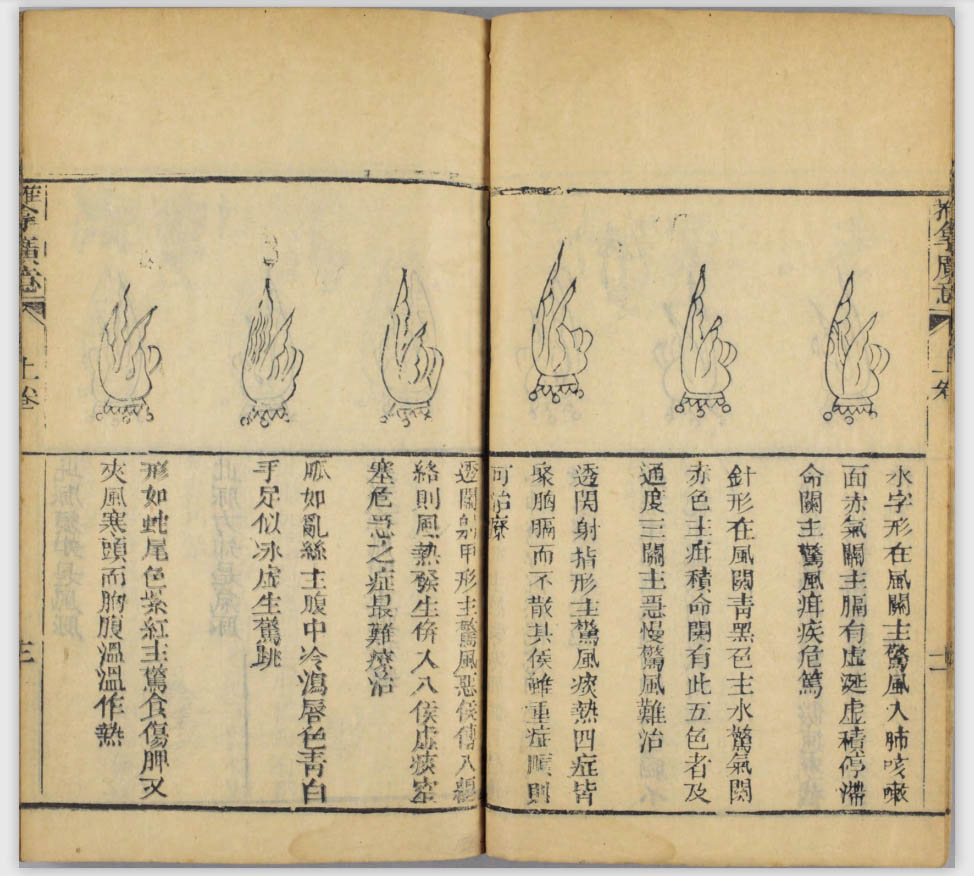 水字形在風關主驚風入肺咳嗽
面赤氣關主膈有虛涎虛積停滯
命關主驚風疳疾危篤
針形在風関青黑色主水驚氣関
赤色主疳積命関有此五色者及
通度三關主惡慢驚風難治
透関射指形主驚風痰熱四症皆
聚胸膈而不散其侯雖重症順則
可治療
透関射甲形主驚風惡侯傳入經
絡則風熱發生併入八侯虛痰窒
塞危惡之症最難療治
脈如亂絲主腹中冷瀉唇色青白
手足似冰虛生驚跳
形如蛇尾色紫紅主驚食傷脾又
夾風寒頭而胸腹溫溫作熱
廣意
上卷
三